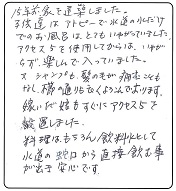 15年前家を建築しました。
子供達はアトピーで水道の水だけ
でのお風呂はとてもいやがっていました。
アクセス5を使用してからは、いやが
らず、楽しんで入っていました。
又、シャンプーも、髪の毛が痛むこともな
く、櫛の通りもよくよろこんでおります。
嫁いだ娘もすぐにアクセス5を
設置しました。
料理はもちろん飲料水として
水道の蛇口から直接飲む事
が出き安心です。